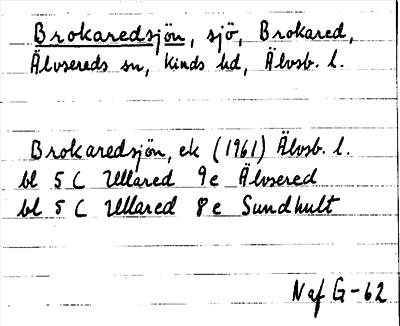 Brokaredsjön, sjö, Brokared,
Älvsereds sn, Kinds hd, Älvsb. l.
Brokaredsjön, ek (1961) Älvsb. l.
bl 5 C Ullared 9 e Älvsered
bl 5 C Ullared 8 e Sundhult
Naf G-62